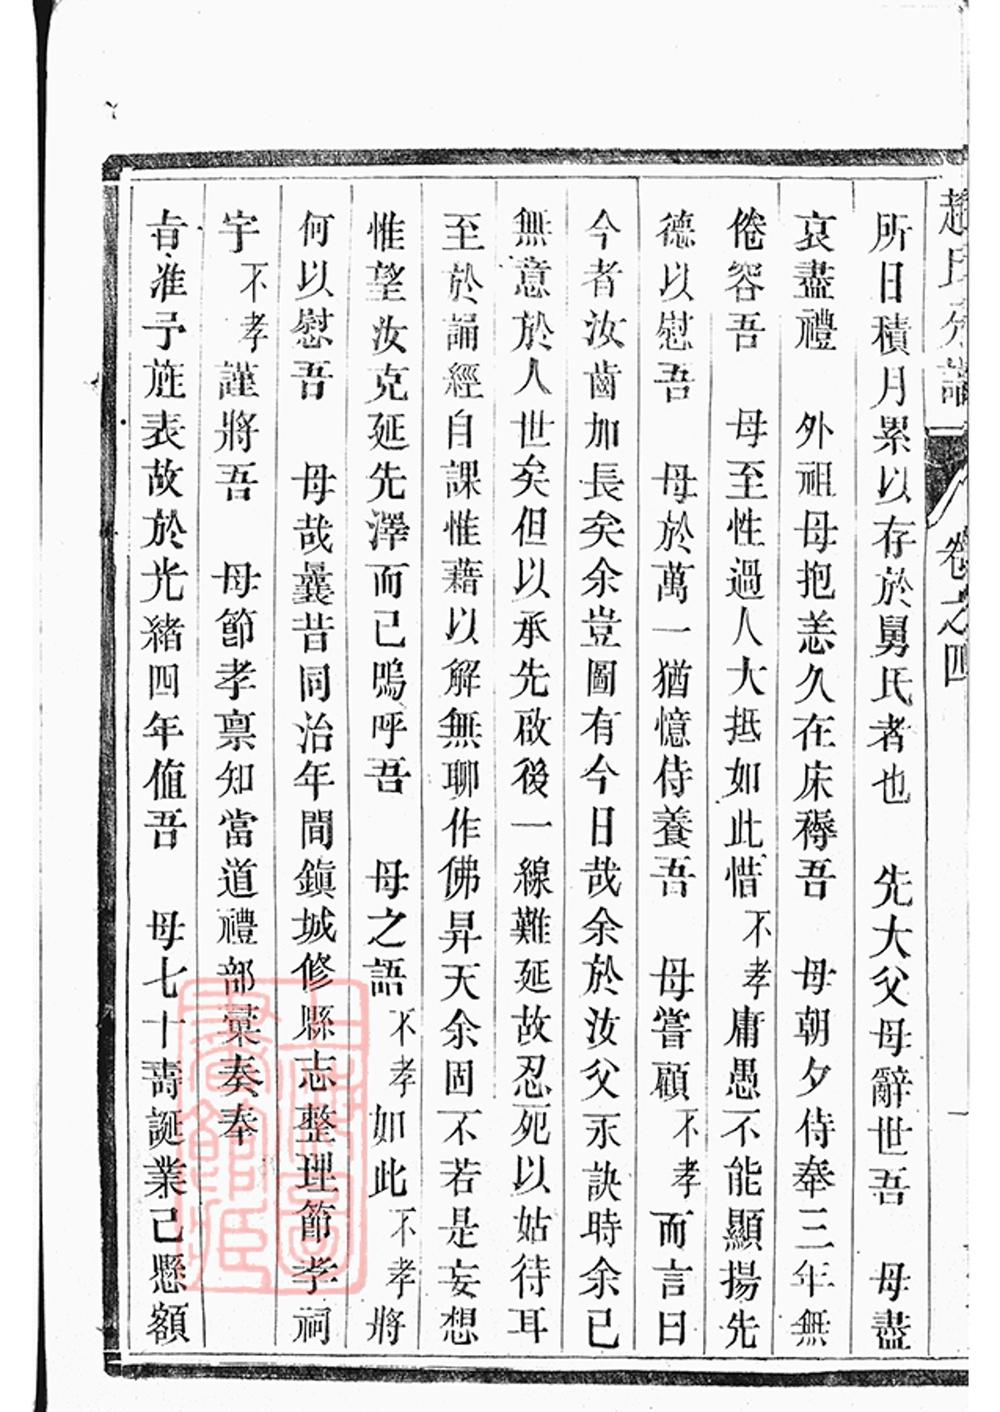 趙氏分譜 卷之四
所日積月累以存於舅氏者也　先大父母辭世吾　母盡
哀盡禮　外祖母抱恙久在床褥吾　母朝夕侍奉三年無
倦容吾　母至性過人大抵如此惜不孝庸愚不能顯揚先
德以慰吾　母於萬一猶憶侍養吾　母嘗顧不孝而言曰
今者汝齒加長矣余豈圖有今日哉余於汝父永訣時余已
無意於人世矣但以承先啟後一線難延故忍死以姑待耳
至於誦經自課惟藉以解無聊作佛昇天余固不若是妄想
惟望汝克延先澤而已嗚呼吾　母之語不孝如此不孝將
何以慰吾　母哉曩昔同治年間鎮城修縣志整理節孝祠
宇不孝謹將吾　母節孝稟知當道禮部彙奏奉
旨准予旌表故於光緒四年值吾　母七十壽誕業已懸額